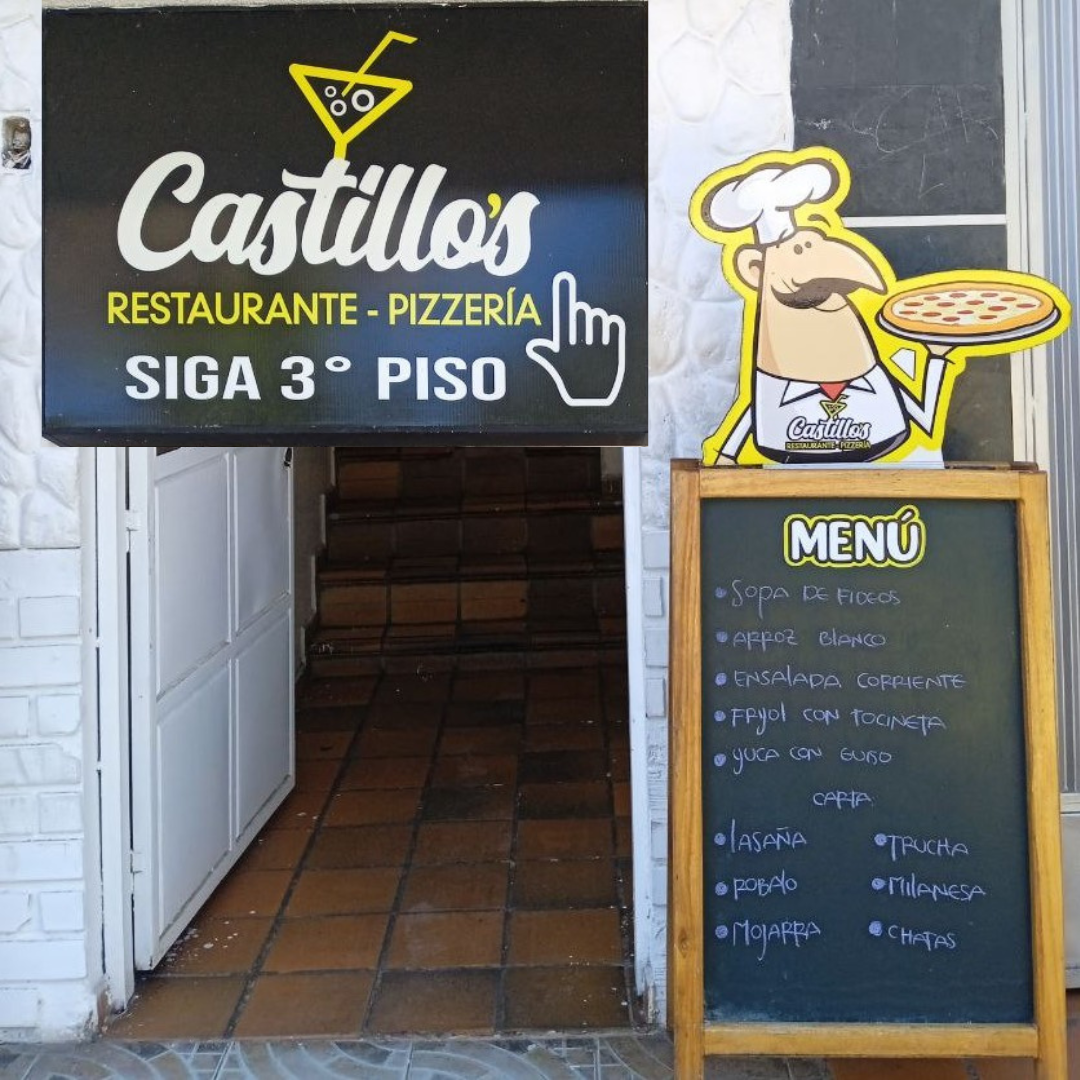 Castillo's
RESTAURANTE - PIZZERÍA
SIGA 3° PISO
Castillos
RESTAURANTE - PIZZERÍA
MENÚ
• SOPA DE FIDEOS
• ARROZ BLANCO
• ENSALADA CORRIENTE
• FRYOL CON TOCINETA
• YUCA CON GUISO
CARTA
• LASAÑA
• TRUCHA
• ROBALO
• MILANESA
• MOJARRA
• CHATAS